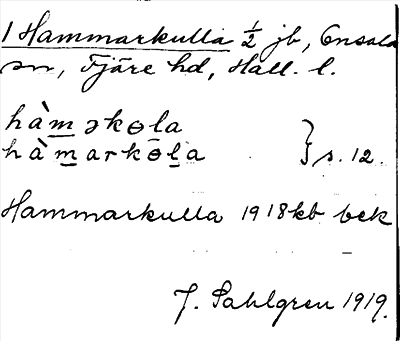 1 Hammarkulla ½ jb, Onsala
sn, Fjäre hd, Hall. l.
hàməkɵla
hàmarkɵla } s. 12.
Hammarkulla 1918 kb bek
J. Sahlgren 1919.